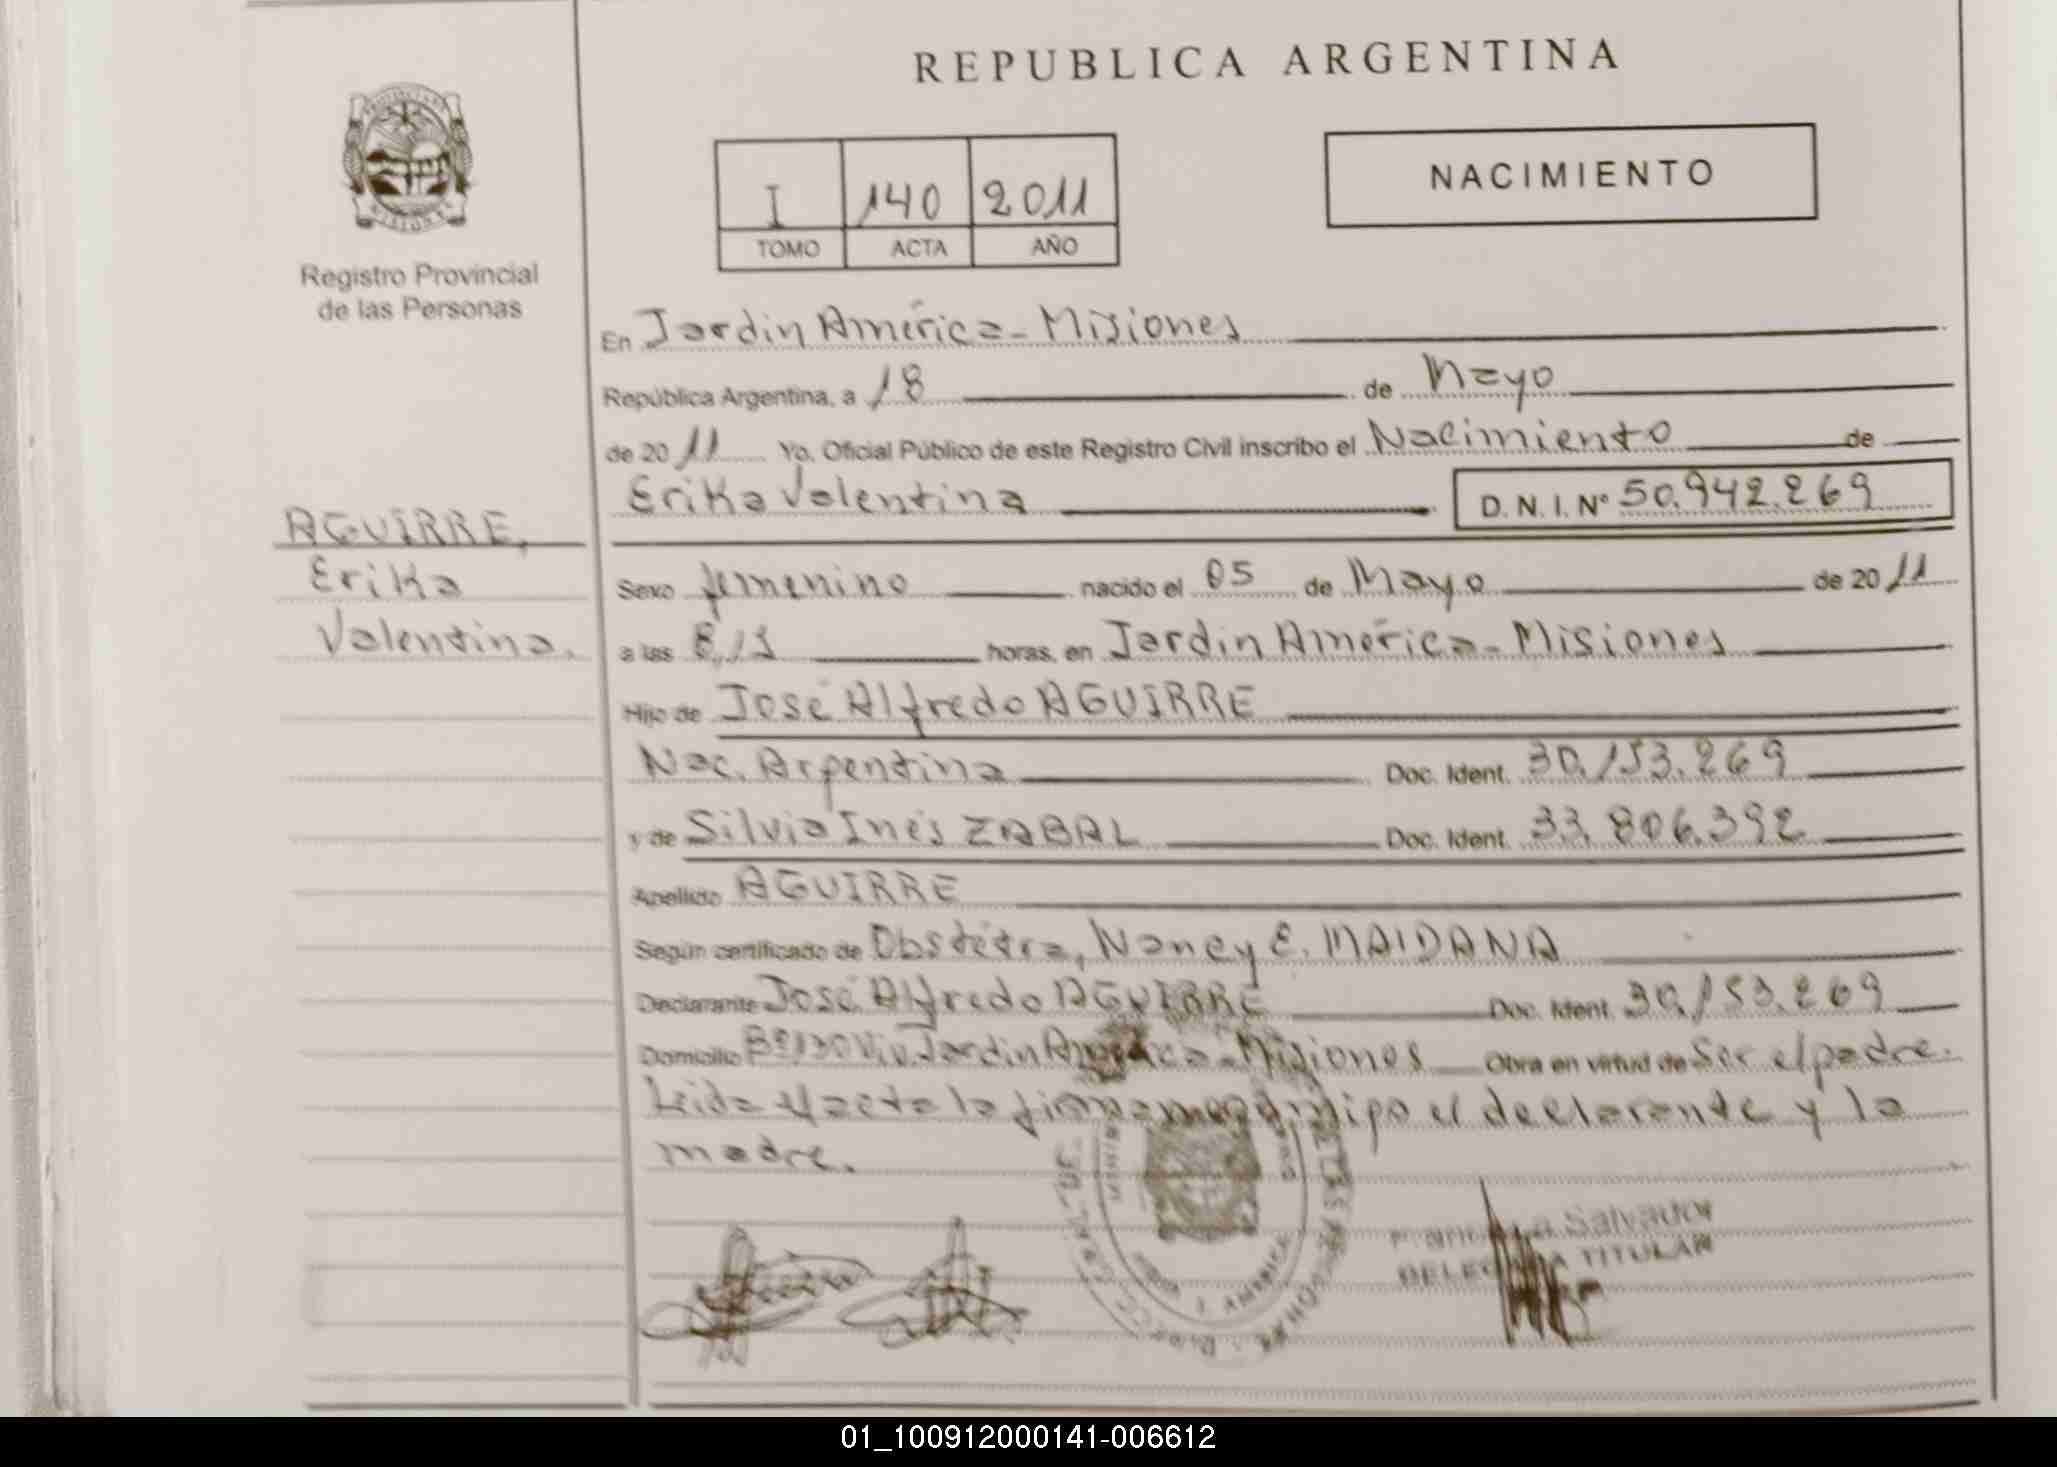 REPUBLICA ARGENTINA
NACIMIENTO
I 140 2011
TOMO ACTA AÑO
Registro Provincial
de las Personas
En Jardín América - Misiones
República Argentina, a 18 de Mayo
de 20 11 Yo, Oficial Público de este Registro Civil inscribo el Nacimiento de
Erika Valentina D. N. I. Nº 50.942.269
AGUIRRE,
Erika
Valentina.
Sexo femenino nacido el 05 de Mayo de 20 11
a las horas, en Jardín América - Misiones
Hijo de José Alfredo AGUIRRE
Nac. Argentina Doc. Ident. 30.153.269
y de Silvia Inés ZABAL Doc. Ident. 33.806.392
Apellido AGUIRRE
Según certificado de Obstétra, Nancy E. MAIDANA
Declarante José Alfredo AGUIRRE Doc. Ident. 30.153.269
Domicilio Jardín América - Misiones Obra en virtud de Ser el padre.
Leida el acta la firman conmigo el declarante y la
madre.
Salvador
TITULAR
01_100912000141-006612